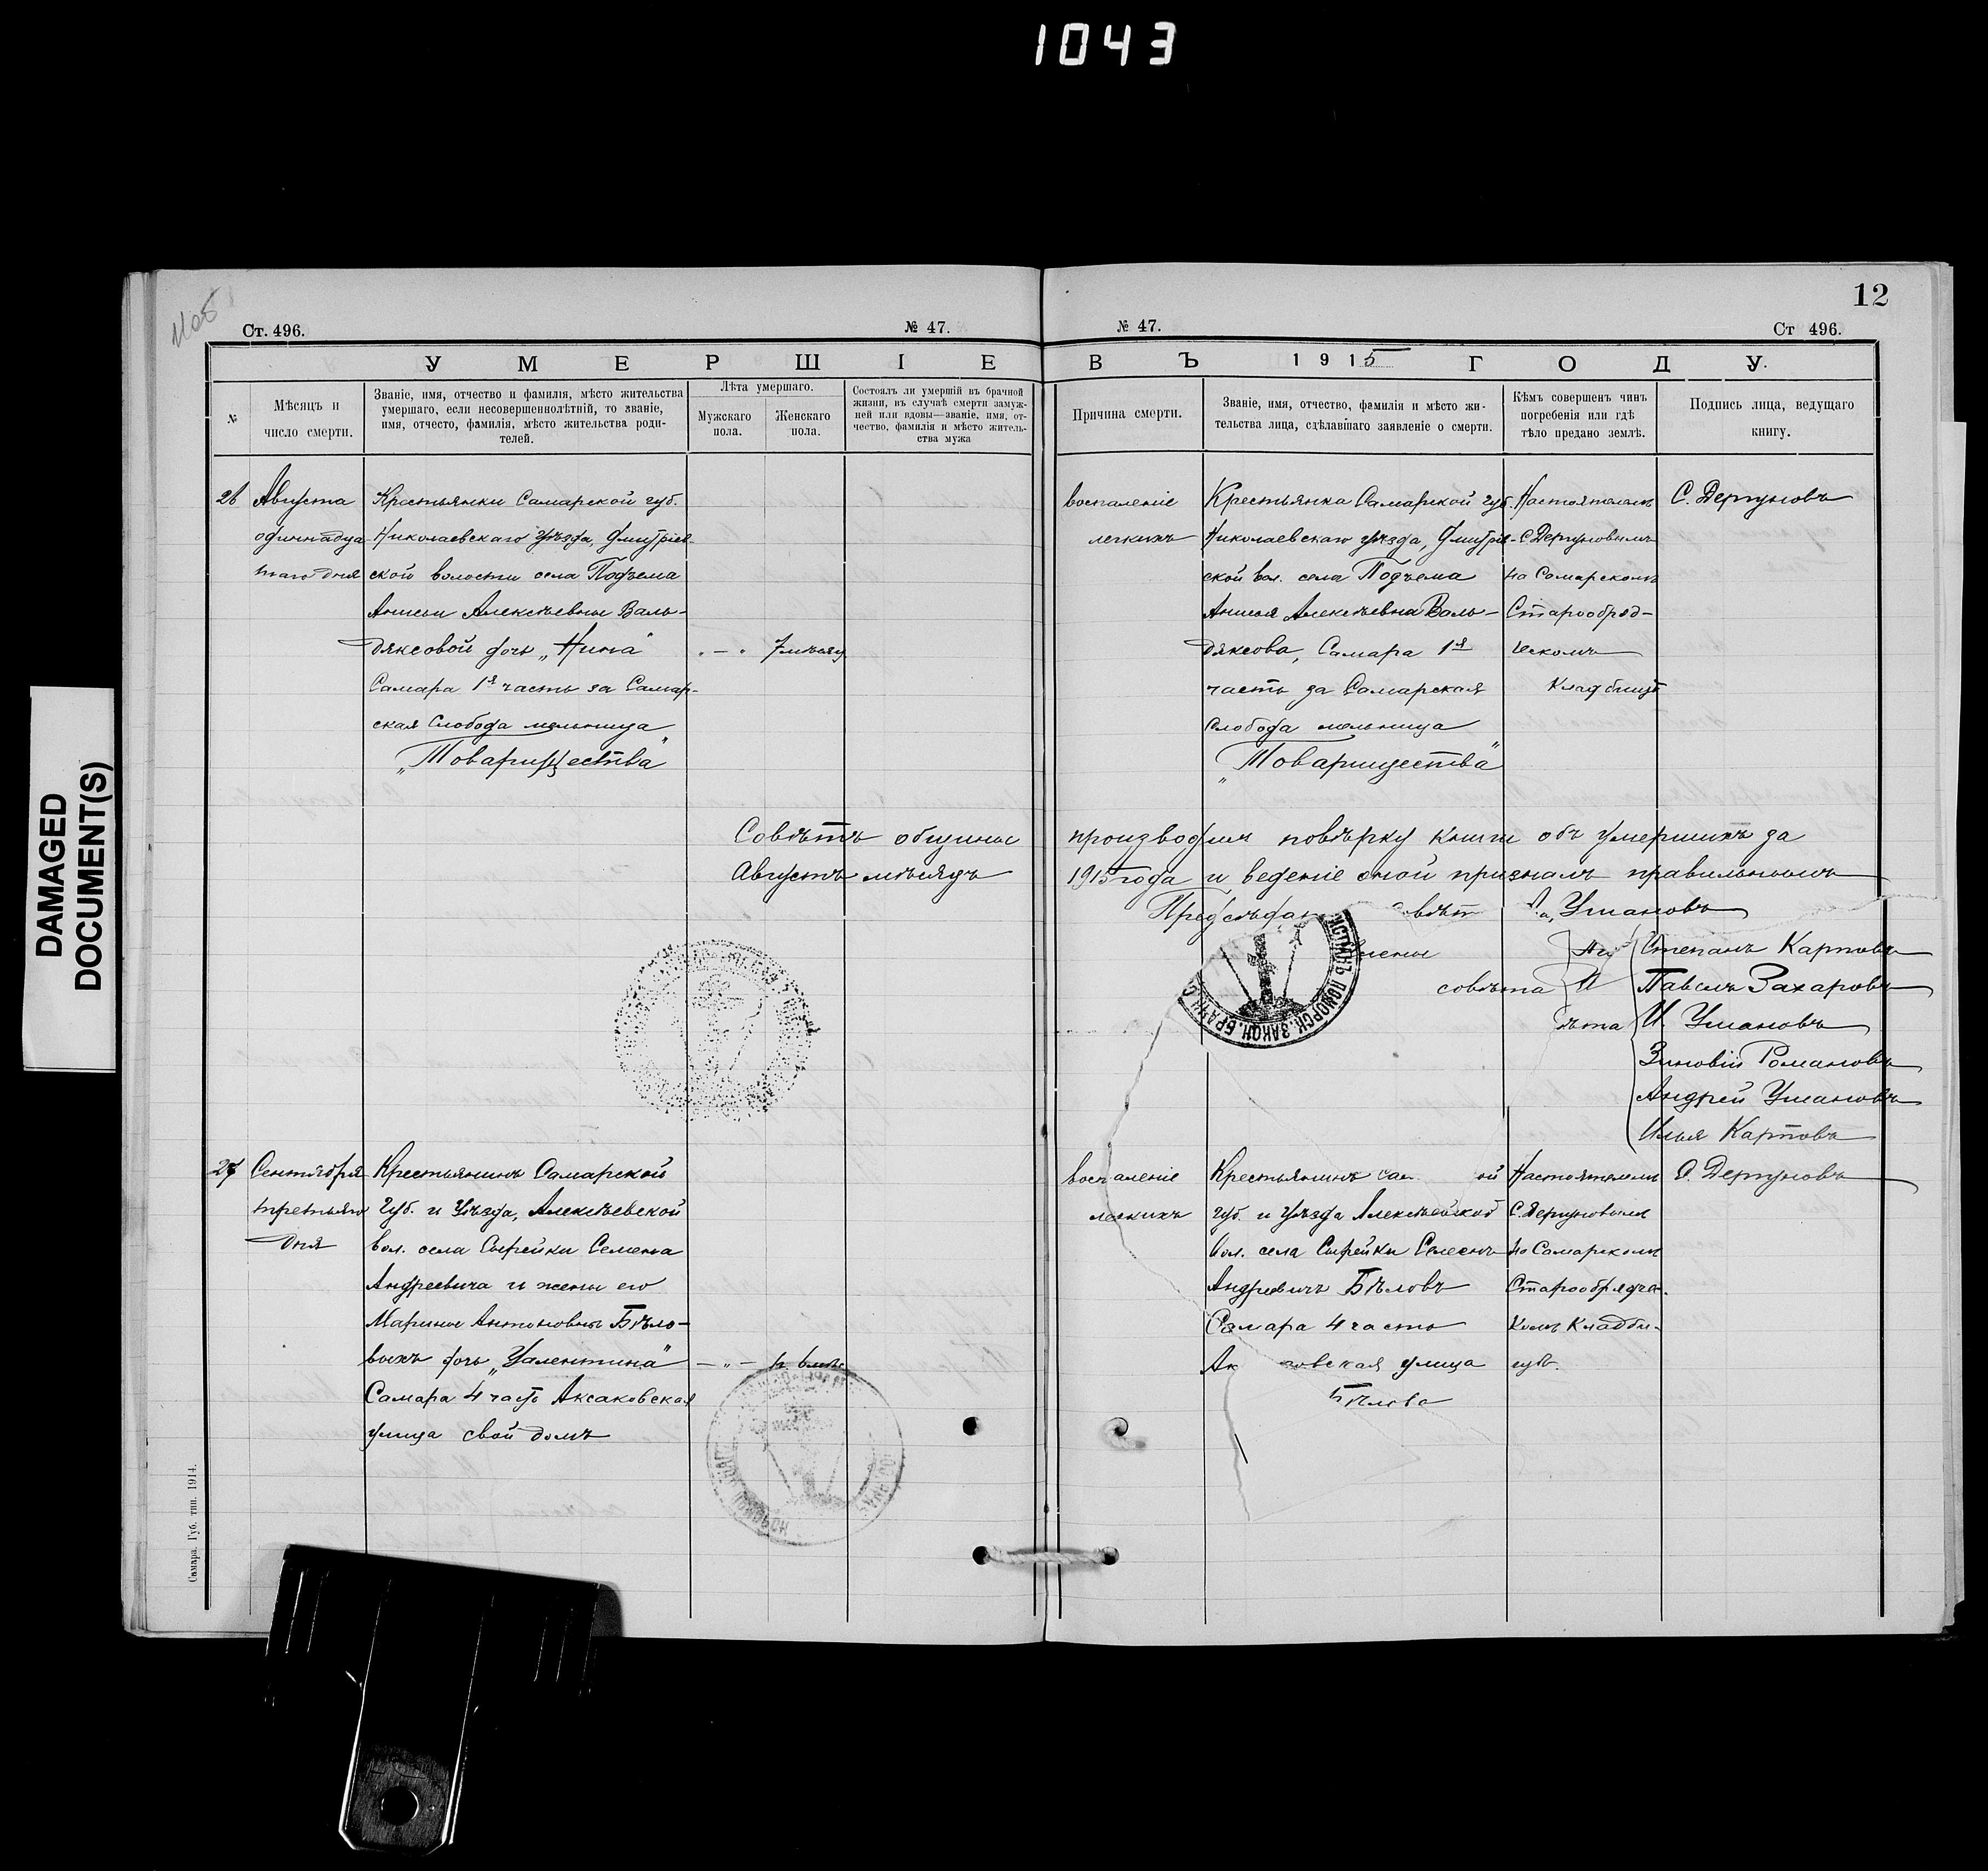 1043
DAMAGED
DOCUMENT(S)
12
Ст. 496.
№ 47.
№ 47.
Ст 496.
УМЕРШІЕ
ВЪ 1915 ГОДУ.
№
Мѣсяцъ и
число смерти.
Званіе, имя, отчество и фамилія, мѣсто жительства
умершаго, если несовершеннолѣтній, то званіе,
имя, отчесто, фамилія, мѣсто жительства роди-
телей.
Лѣта умершаго.
Мужскаго
пола.
Женскаго
пола.
Состоялъ ли умершій въ брачной
жизни, въ случаѣ смерти замуж-
ней или вдовы—званіе, имя, от-
чество, фамилія и мѣсто житель-
ства мужа
Причина смерти.
Званіе, имя, отчество, фамилія и мѣсто жи-
тельства лица, сдѣлавшаго заявленіе о смерти.
Кѣмъ совершенъ чинъ
погребенія или гдѣ
тѣло предано землѣ.
Подпись лица, ведущаго
книгу.
26
Августа
одиннадца
таго дня
Крестьянки Самарской губ.
Николаевскаго уѣзда, Дмитріев-
ской волости села Подъема
Анисьи Алексѣевны Валь-
дяксовой дочь „Нина"
Самара 1я часть за Самар-
ская слобода мельница
„Товарищества"
7 мѣсяц.
воспаленіе
легкихъ
Крестьянка Самарской губ.
Николаевскаго уѣзда, Дмитріе-
ской вол. села Подъема
Анисья Алексѣевна Валь-
дяксова, Самара 1я
часть за Самарская
слобода мельница
„Товарищества"
Настоятелемъ
С Дергуновымъ
на Самарскомъ
Старообряд-
ческомъ
Кладбищѣ
С. Дергуновъ
Совѣтъ общины производилъ повѣрку книги объ умершихъ за
Августъ мѣсяцъ 1915 года и веденіе оной призналъ правильнымъ
Предсѣдат Ушановъ
совѣта
Степанъ Карповъ
Павелъ Захаровъ
И. Ушановъ
Зиновій Романовъ
Андрей Ушановъ
Илья Карповъ
ПОМОРСК. ЗАКОН. БРАЧН.
27
Сентября
третьяго
дня
Крестьянинъ Самарской
Губ. и Уѣзда, Алексѣевской
вол. села Сырейки Семена
Андреевича и жены его
Марины Антоновны Бѣло-
выхъ дочь „Валентина"
Самара 4 часть Аксаковская
улица свой домъ
воспаленіе
легкихъ
Крестьянинъ Сам ой
губ. и уѣзда Алексѣевской
вол. села Сырейки Семенъ
Андреевичъ Бѣловъ
Самара 4 часть
Ак овская улица
Бѣлова
Настоятелемъ
С. Дергуновымъ
на Самарскомъ
Старообрядчес-
комъ Кладби-
щѣ.
С. Дергуновъ
Самара. Губ. тип. 1914.